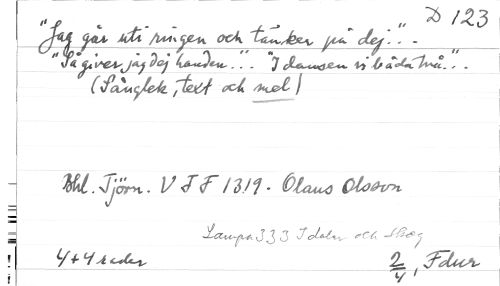 D 123
"Jag går uti ringen och tänker på dej."..
"Så giver jag dej handen."... "I dansen vi båda två."..
(Sånglek, text och mel)
Bhl. Tjörn. VFF 1319. Olaus Olsson
Lampa 333 I dalar och skog
4+4 rader
2/4, F dur